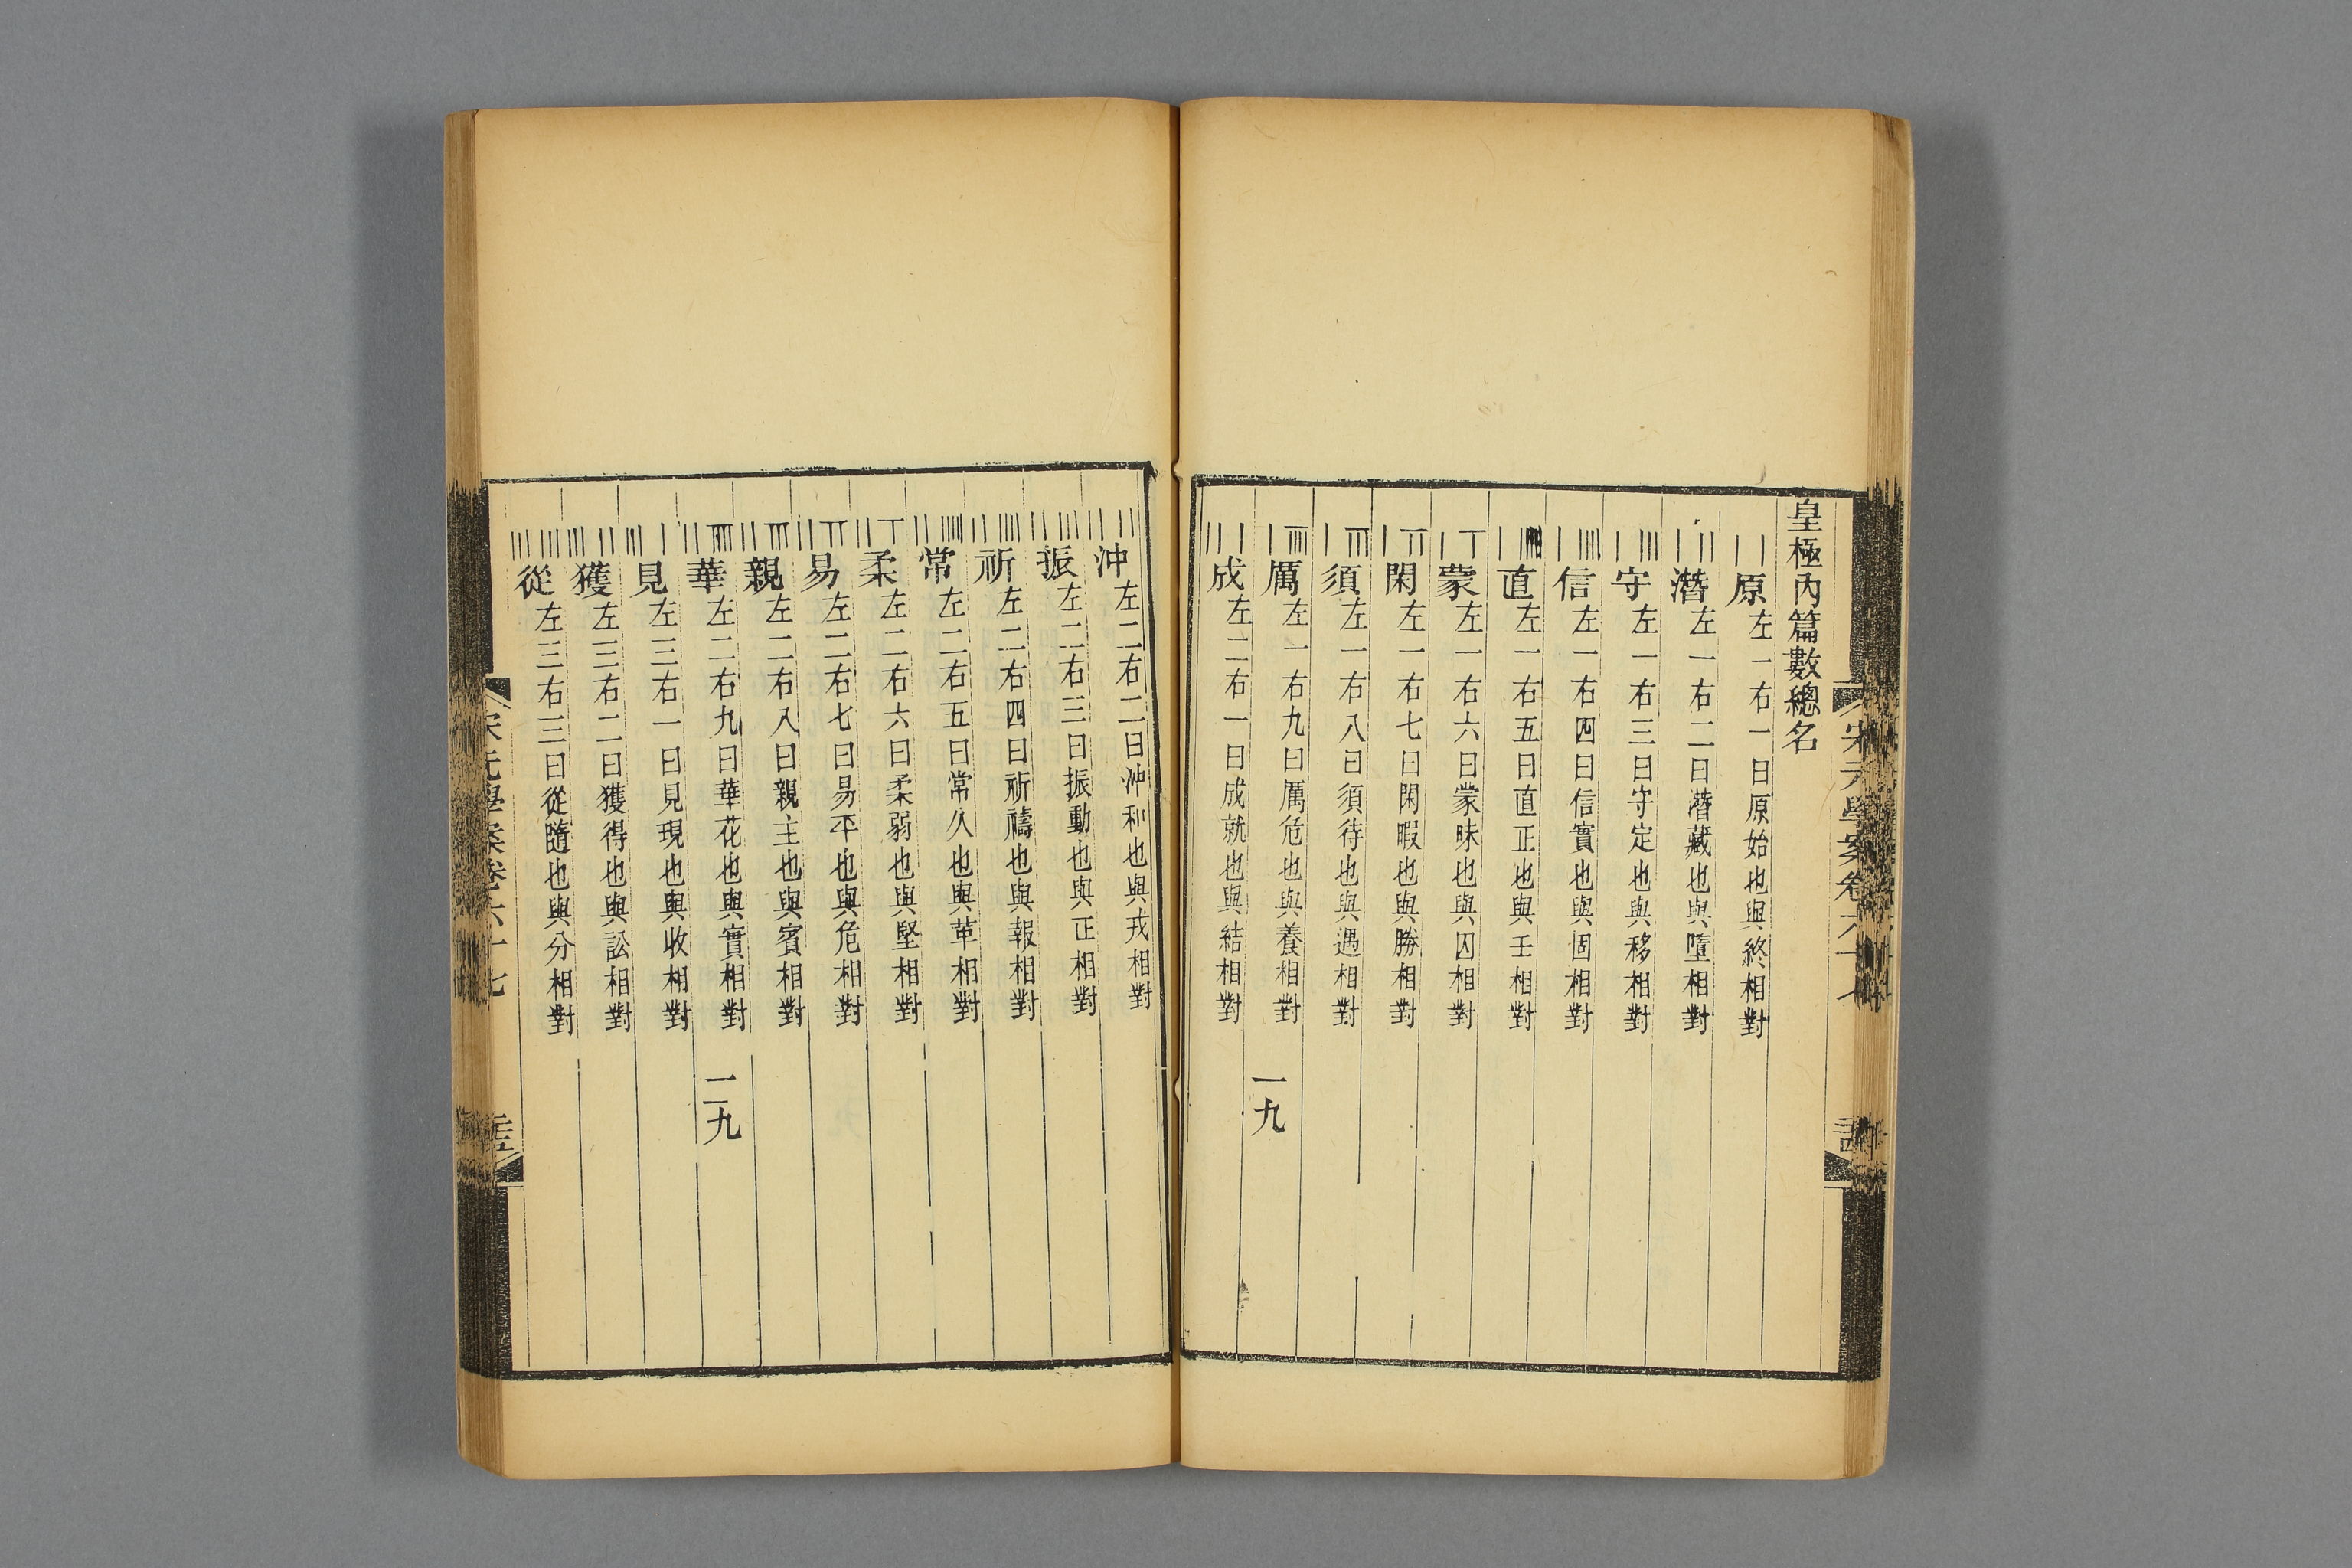 皇極內篇數總名
原 左一右一曰原始也與終相對
潛 左一右二曰潛藏也與墮相對
守 左一右三曰守定也與移相對
信 左一右四曰信實也與固相對
直 左一右五曰直正也與壬相對
蒙 左一右六曰蒙昧也與囚相對
閑 左一右七曰閑暇也與勝相對
須 左一右八曰須待也與遇相對
厲 左一右九曰厲危也與養相對 一九
成 左二右一曰成就也與結相對
沖 左二右二曰沖和也與戎相對
振 左二右三曰振動也與正相對
祈 左二右四曰祈禱也與報相對
常 左二右五曰常久也與革相對
柔 左二右六曰柔弱也與堅相對
易 左二右七曰易平也與危相對
親 左二右八曰親主也與賓相對
華 左二右九曰華花也與實相對 二九
見 左三右一曰見現也與收相對
獲 左三右二曰獲得也與訟相對
從 左三右三曰從隨也與分相對
宋元學案卷六十七